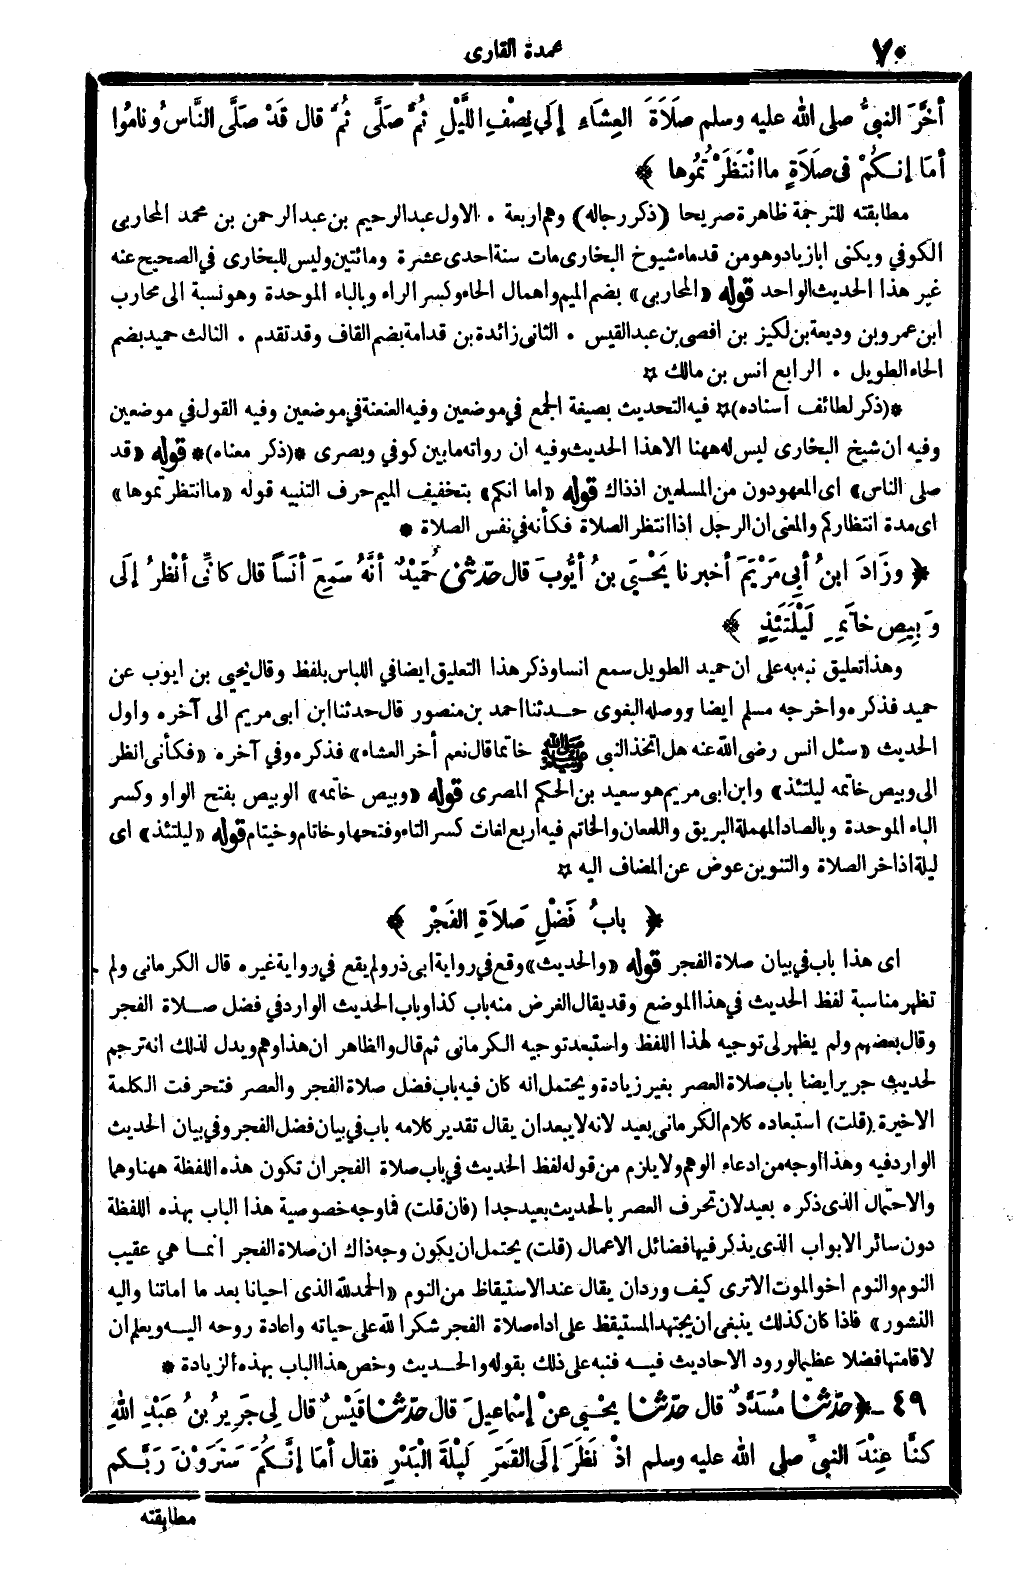 ٧٠
عمدة القارى
أخَّرَ النبىُّ صلى الله عليه وسلم صَلَاةَ العِشَاءِ إلَى نِصْفِ اللَّيْلِ ثُمَّ صَلَّى ثُمَّ قال قَدْ صَلَّى النَّاسُ ونامُوا
أمَا إنكُمْ فى صَلَاةٍ ما انْتَظَرْتُمُوها ﴾
مطابقته للترجمة ظاهرة صريحا (ذكر رجاله) وهم اربعة . الاول عبد الرحيم بن عبد الرحمن بن محمد المحاربى
الكوفي ويكنى ابا زياد وهو من قدماء شيوخ البخارى مات سنة احدى عشرة ومائتين وليس للبخارى في الصحيح عنه
غير هذا الحديث الواحد قوله «المحاربى» بضم الميم واهمال الحاء وكسر الراء وبالباء الموحدة وهو نسبة الى محارب
ابن عمرو بن وديعة بن لكيز بن افصى بن عبد القيس . الثانى زائدة بن قدامة بضم القاف وقد تقدم . الثالث حميد بضم
الحاء الطويل . الرابع انس بن مالك ☆
*(ذكر لطائف اسناده)☆ فيه التحديث بصيغة الجمع في موضعين وفيه العنعنة في موضعين وفيه القول في موضعين
وفيه ان شيخ البخارى ليس له ههنا الا هذا الحديث وفيه ان رواته ما بين كوفي وبصرى *(ذكر معناه)* قوله «قد
صلى الناس» اى المعهودون من المسلمين اذ ذاك قوله «اما انكم» بتخفيف الميم حرف التنبيه قوله «ما انتظرتموها»
اى مدة انتظاركم والمعنى ان الرجل اذا انتظر الصلاة فكأنه في نفس الصلاة *
﴿ وزَادَ ابنُ أبِى مَرْيَمَ أخبرنا يَحْيَى بنُ أيُّوبَ قال حدّثنى حُمَيْدٌ أنَّهُ سَمِعَ أنَساً قال كانِّى أنْظُرُ إلَى
وَبِيصِ خاتَمِهِ لَيْلَتَئِذٍ ﴾
وهذا تعليق نبه به على ان حميد الطويل سمع انسا وذكر هذا التعليق ايضا في اللباس بلفظ وقال يحيى بن ايوب عن
حميد فذكره واخرجه مسلم ايضا ووصله البغوى حدثنا احمد بن منصور قال حدثنا ابن ابى مريم الى آخره واول
الحديث «سئل انس رضى الله عنه هل اتخذ النبى ﷺ خاتما قال نعم أخر العشاء» فذكره وفي آخره «فكأنى انظر
الى وبيص خاتمه ليلتئذ» وابن ابى مريم هو سعيد بن الحكم المصرى قوله «وبيص خاتمه» الوبيص بفتح الواو وكسر
الباء الموحدة وبالصاد المهملة البريق واللمعان والخاتم فيه اربع لغات كسر التاء وفتحها وخاتام وخيتام قوله «ليلتئذ» اى
ليلة اذ اخر الصلاة والتنوين عوض عن المضاف اليه ☆
﴿ بابُ فَضْلِ صَلاَةِ الفَجْرِ ﴾
اى هذا باب في بيان صلاة الفجر قوله «والحديث» وقع في رواية ابى ذر ولم يقع في رواية غيره قال الكرمانى ولم
تظهر مناسبة لفظ الحديث في هذا الموضع وقد يقال الغرض منه باب كذا وباب الحديث الوارد في فضل صلاة الفجر
وقال بعضهم ولم يظهر لى توجيه لهذا اللفظ واستبعد توجيه الكرمانى ثم قال والظاهر ان هذا وهم ويدل لذلك انه ترجم
لحديث جرير ايضا باب صلاة العصر بغير زيادة ويحتمل انه كان فيه باب فضل صلاة الفجر والعصر فتحرفت الكلمة
الاخيرة (قلت) استبعاده كلام الكرمانى بعيد لانه لا يبعد ان يقال تقدير كلامه باب في بيان فضل الفجر وفي بيان الحديث
الوارد فيه وهذا اوجه من ادعاء الوهم ولا يلزم من قوله لفظ الحديث في باب صلاة الفجر ان تكون هذه اللفظة ههنا وهما
والاحتمال الذى ذكره بعيد لان تحرف العصر بالحديث بعيد جدا (فان قلت) فما وجه خصوصية هذا الباب بهذه اللفظة
دون سائر الابواب الذى يذكر فيها فضائل الاعمال (قلت) يحتمل ان يكون وجه ذاك ان صلاة الفجر انما هي عقيب
النوم والنوم اخو الموت الا ترى كيف ورد ان يقال عند الاستيقاظ من النوم «الحمد لله الذى احيانا بعد ما اماتنا واليه
النشور» فاذا كان كذلك ينبغى ان يجتهد المستيقظ على اداء صلاة الفجر شكرا لله على حياته واعادة روحه اليه ويعلم ان
لاقامتها فضلا عظيما لورود الاحاديث فيه فنبه على ذلك بقوله والحديث وخص هذا الباب بهذه الزيادة *
٤٩ ـ ﴿حدّثنا مُسَدَّدٌ قال حدّثنا يحْيَى عنْ إسْماعِيلَ قال حدّثنا قَيْسٌ قال لِى جَرِيرُ بنُ عَبْدِ اللهِ
كنَّا عِنْدَ النبىِّ صلى الله عليه وسلم اذْ نَظَرَ إلَى القَمَرِ لَيْلَةَ البَدْرِ فقال أمَا إنَّكُمْ سَتَرَوْنَ رَبَّكم
مطابقته